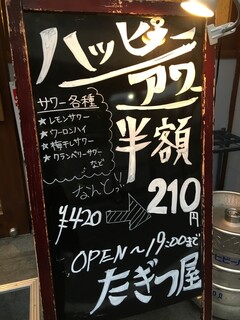 ハッピー
アワー
サワー各種
★レモンサワー
★ウーロンハイ
★梅干しサワー
★クランベリーサワー
など
半額
なんとッ!!
¥420
210円
OPEN～19:00まで
たぎつ屋